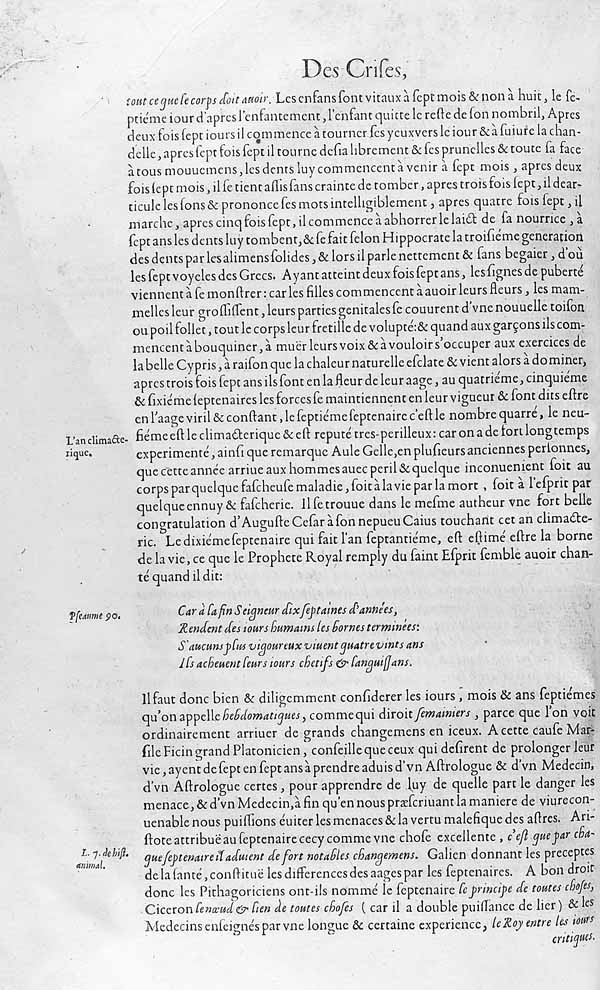 Des Criſes,
tout ce que le corps doit auoir. Les enfans ſont vitaux à ſept mois & non à huit, le ſe-
ptiéme iour d'apres l'enfantement, l'enfant quitte le reſte de ſon nombril, Apres
deux fois ſept iours il commence à tourner ſes yeux vers le iour & à ſuiure la chan-
delle, apres ſept fois ſept il tourne deſia librement & ſes prunelles & toute ſa face
à tous mouuemens, les dents luy commencent à venir à ſept mois, apres deux
fois ſept mois, il ſe tient aſſis ſans crainte de tomber, apres trois fois ſept, il dear-
ticule les ſons & prononce ſes mots intelligiblement, apres quatre fois ſept, il
marche, apres cinq fois ſept, il commence à abhorrer le laict de ſa nourrice, à
ſept ans les dents luy tombent, & ſe fait ſelon Hippocrate la troiſiéme generation
des dents par les alimens ſolides, & lors il parle nettement & ſans begaier, d'où
les ſept voyeles des Grecs. Ayant atteint deux fois ſept ans, les ſignes de puberté
viennent à ſe monſtrer: car les filles commencent à auoir leurs fleurs, les mam-
melles leur groſſiſſent, leurs parties genitales ſe couurent d'vne nouuelle toiſon
ou poil follet, tout le corps leur fretille de volupté: & quand aux garçons ils com-
mencent à bouquiner, à muër leurs voix & à vouloir s'occuper aux exercices de
la belle Cypris, à raiſon que la chaleur naturelle eſclate & vient alors à dominer,
apres trois fois ſept ans ils ſont en la fleur de leur aage, au quatriéme, cinquiéme
& ſixiéme ſeptenaires les forces ſe maintiennent en leur vigueur & ſont dits eſtre
en l'aage viril & conſtant, le ſeptiéme ſeptenaire c'eſt le nombre quarré, le neu-
L'an climacte-
rique.
fiéme eſt le climacterique & eſt reputé tres-perilleux: car on a de fort long temps
experimenté, ainſi que remarque Aule Gelle, en pluſieurs anciennes perſonnes,
que cette année arriue aux hommes auec peril & quelque inconuenient ſoit au
corps par quelque faſcheuſe maladie, ſoit à la vie par la mort, ſoit à l'eſprit par
quelque ennuy & faſcherie. Il ſe trouue dans le meſme autheur vne fort belle
congratulation d'Auguſte Ceſar à ſon nepueu Caius touchant cet an climacte-
ric. Le dixiéme ſeptenaire qui fait l'an ſeptantiéme, eſt eſtimé eſtre la borne
de la vie, ce que le Prophete Royal remply du ſaint Eſprit ſemble auoir chan-
té quand il dit:
Pſeaume 90.
Car à la fin Seigneur dix ſeptaines d'années,
Rendent des iours humains les bornes terminées:
S'aucuns plus vigoureux viuent quatre vints ans
Ils acheuent leurs iours chetifs & languiſſans.
Il faut donc bien & diligemment conſiderer les iours, mois & ans ſeptiémes
qu'on appelle hebdomatiques, comme qui diroit ſemainiers, parce que l'on voit
ordinairement arriuer de grands changemens en iceux. A cette cauſe Mar-
ſile Ficin grand Platonicien, conſeille que ceux qui deſirent de prolonger leur
vie, ayent de ſept en ſept ans à prendre aduis d'vn Aſtrologue & d'vn Medecin,
d'vn Aſtrologue certes, pour apprendre de luy de quelle part le danger les
menace, & d'vn Medecin, à fin qu'en nous præſcriuant la maniere de viure con-
uenable nous puiſſions éuiter les menaces & la vertu malefique des aſtres. Ari-
ſtote attribuë au ſeptenaire cecy comme vne choſe excellente, c'eſt que par cha-
L. 7. de hiſt.
animal.
que ſeptenaire il aduient de fort notables changemens. Galien donnant les preceptes
de la ſanté, conſtituë les differences des aages par les ſeptenaires. A bon droit
donc les Pithagoriciens ont-ils nommé le ſeptenaire le principe de toutes choſes,
Ciceron le nœud & lien de toutes choſes ( car il a double puiſſance de lier ) & les
Medecins enſeignés par vne longue & certaine experience, le Roy entre les iours
critiques.